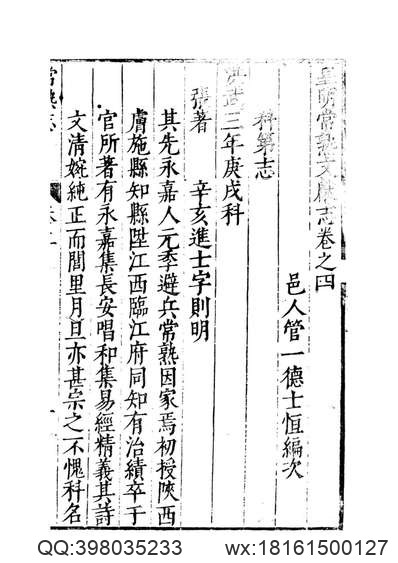 皇明常熟文獻志卷之四
邑人管一德士恒編次
科第志
洪武三年庚戌科
張著 辛亥進士字則明
其先永嘉人元季避兵常熟因家焉初授陝西
膚施縣知縣陞江西臨江府同知有治績卒于
官所著有永嘉集長安唱和集易經精義其詩
文清婉純正而閭里月旦亦甚宗之不愧科名
QQ:398035233 wx:18161500127